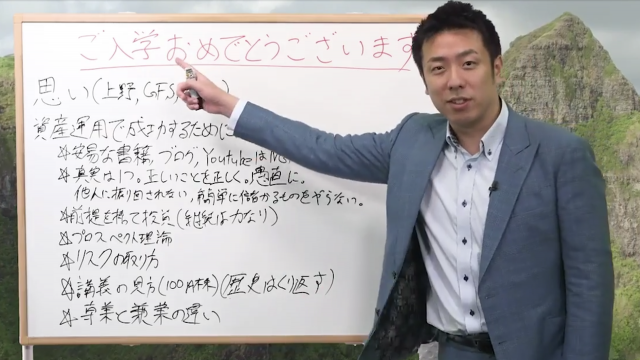 ご入学おめでとうございます
思い(上野,GFS,
資産運用で成功するために
安易な書籍,ブログ,Youtubeは
真実は1つ。正しいことを正しく。愚直に。
他人に振り回されない,簡単に儲かるものをやらない。
前提を持て投資(継続は力なり)
プロスペクト理論
リスクの取り方
講義の見方(100%体系)(歴史はくり返す)
専業と兼業の違い